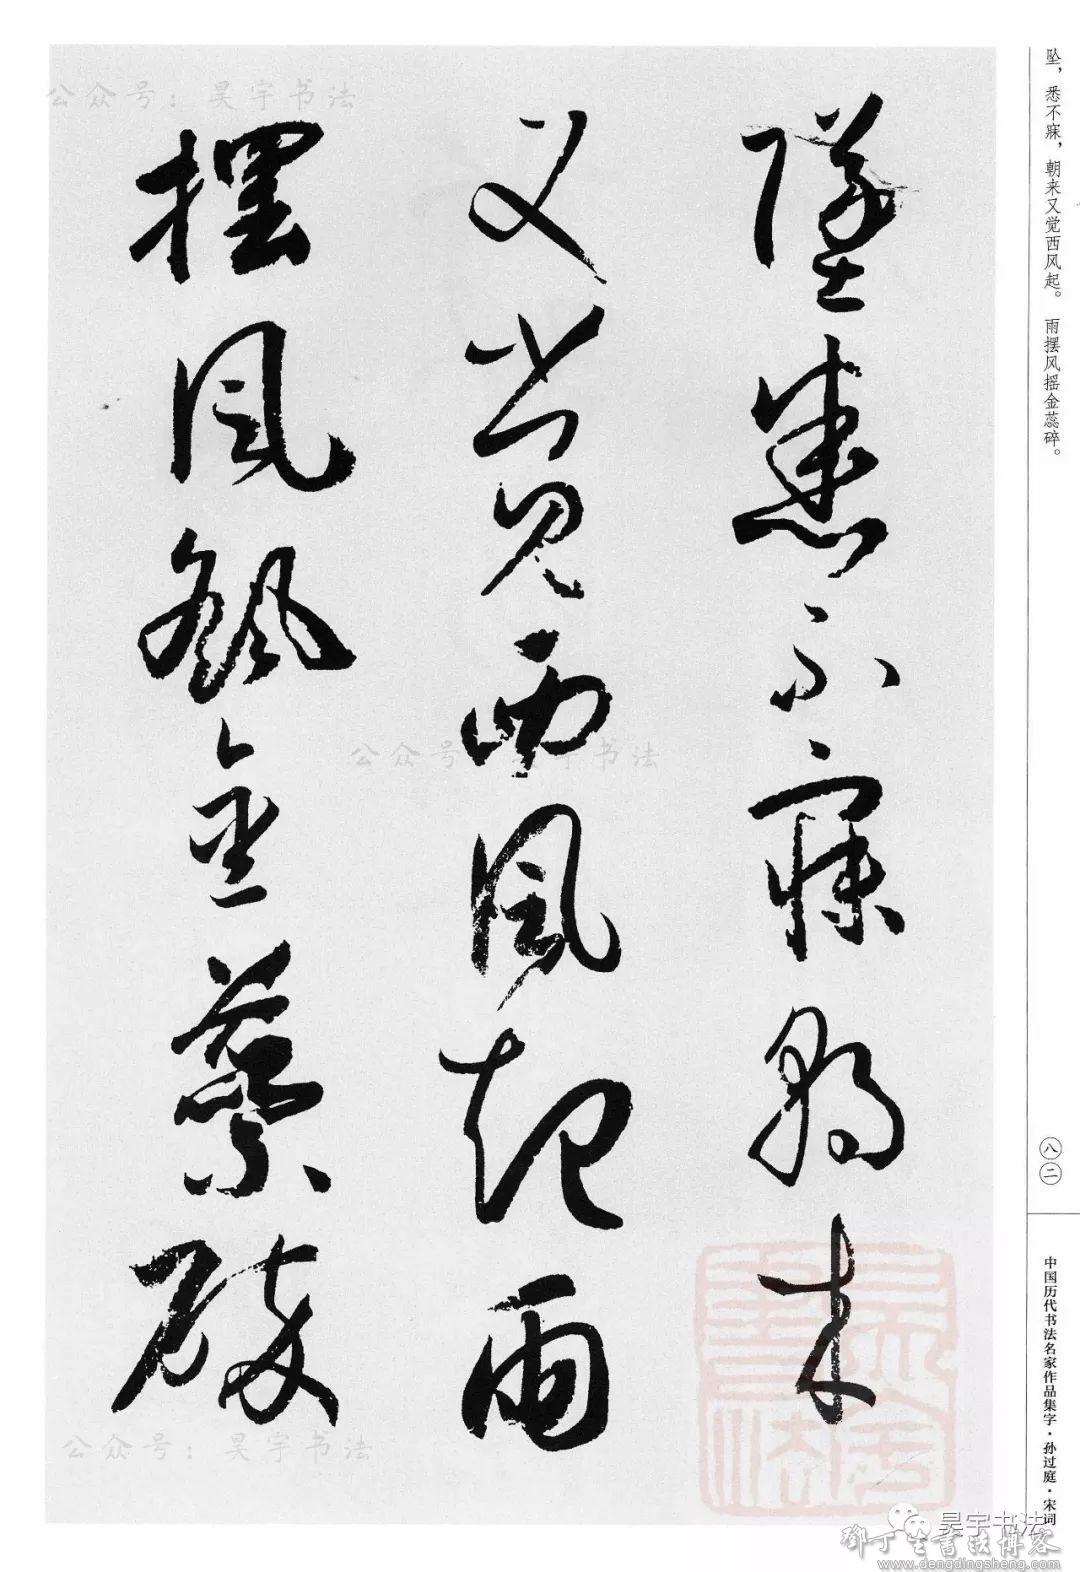 坠，悉不寐，朝来又觉西风起。 雨摆风摇金蕊碎。
墜悉不寐朝来
又觉西风起雨
摆风飖金蘂碎
八二
中国历代书法名家作品集字·孙过庭·宋词
公众号：昊宇书法
公众号：昊宇书法
公众号：昊宇书法
昊宇书法
鄧丁生書法博客
www.dengdingsheng.com